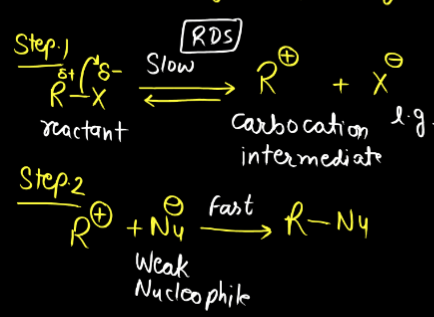 Step.1
RDS
Slow
δ+ δ-
R-X ⇌ R⊕ + X⊖
reactant
Carbocation l.g.
intermediate
Step.2
R⊕ + Nu⊖ Fast → R-Nu
Weak
Nucleophile